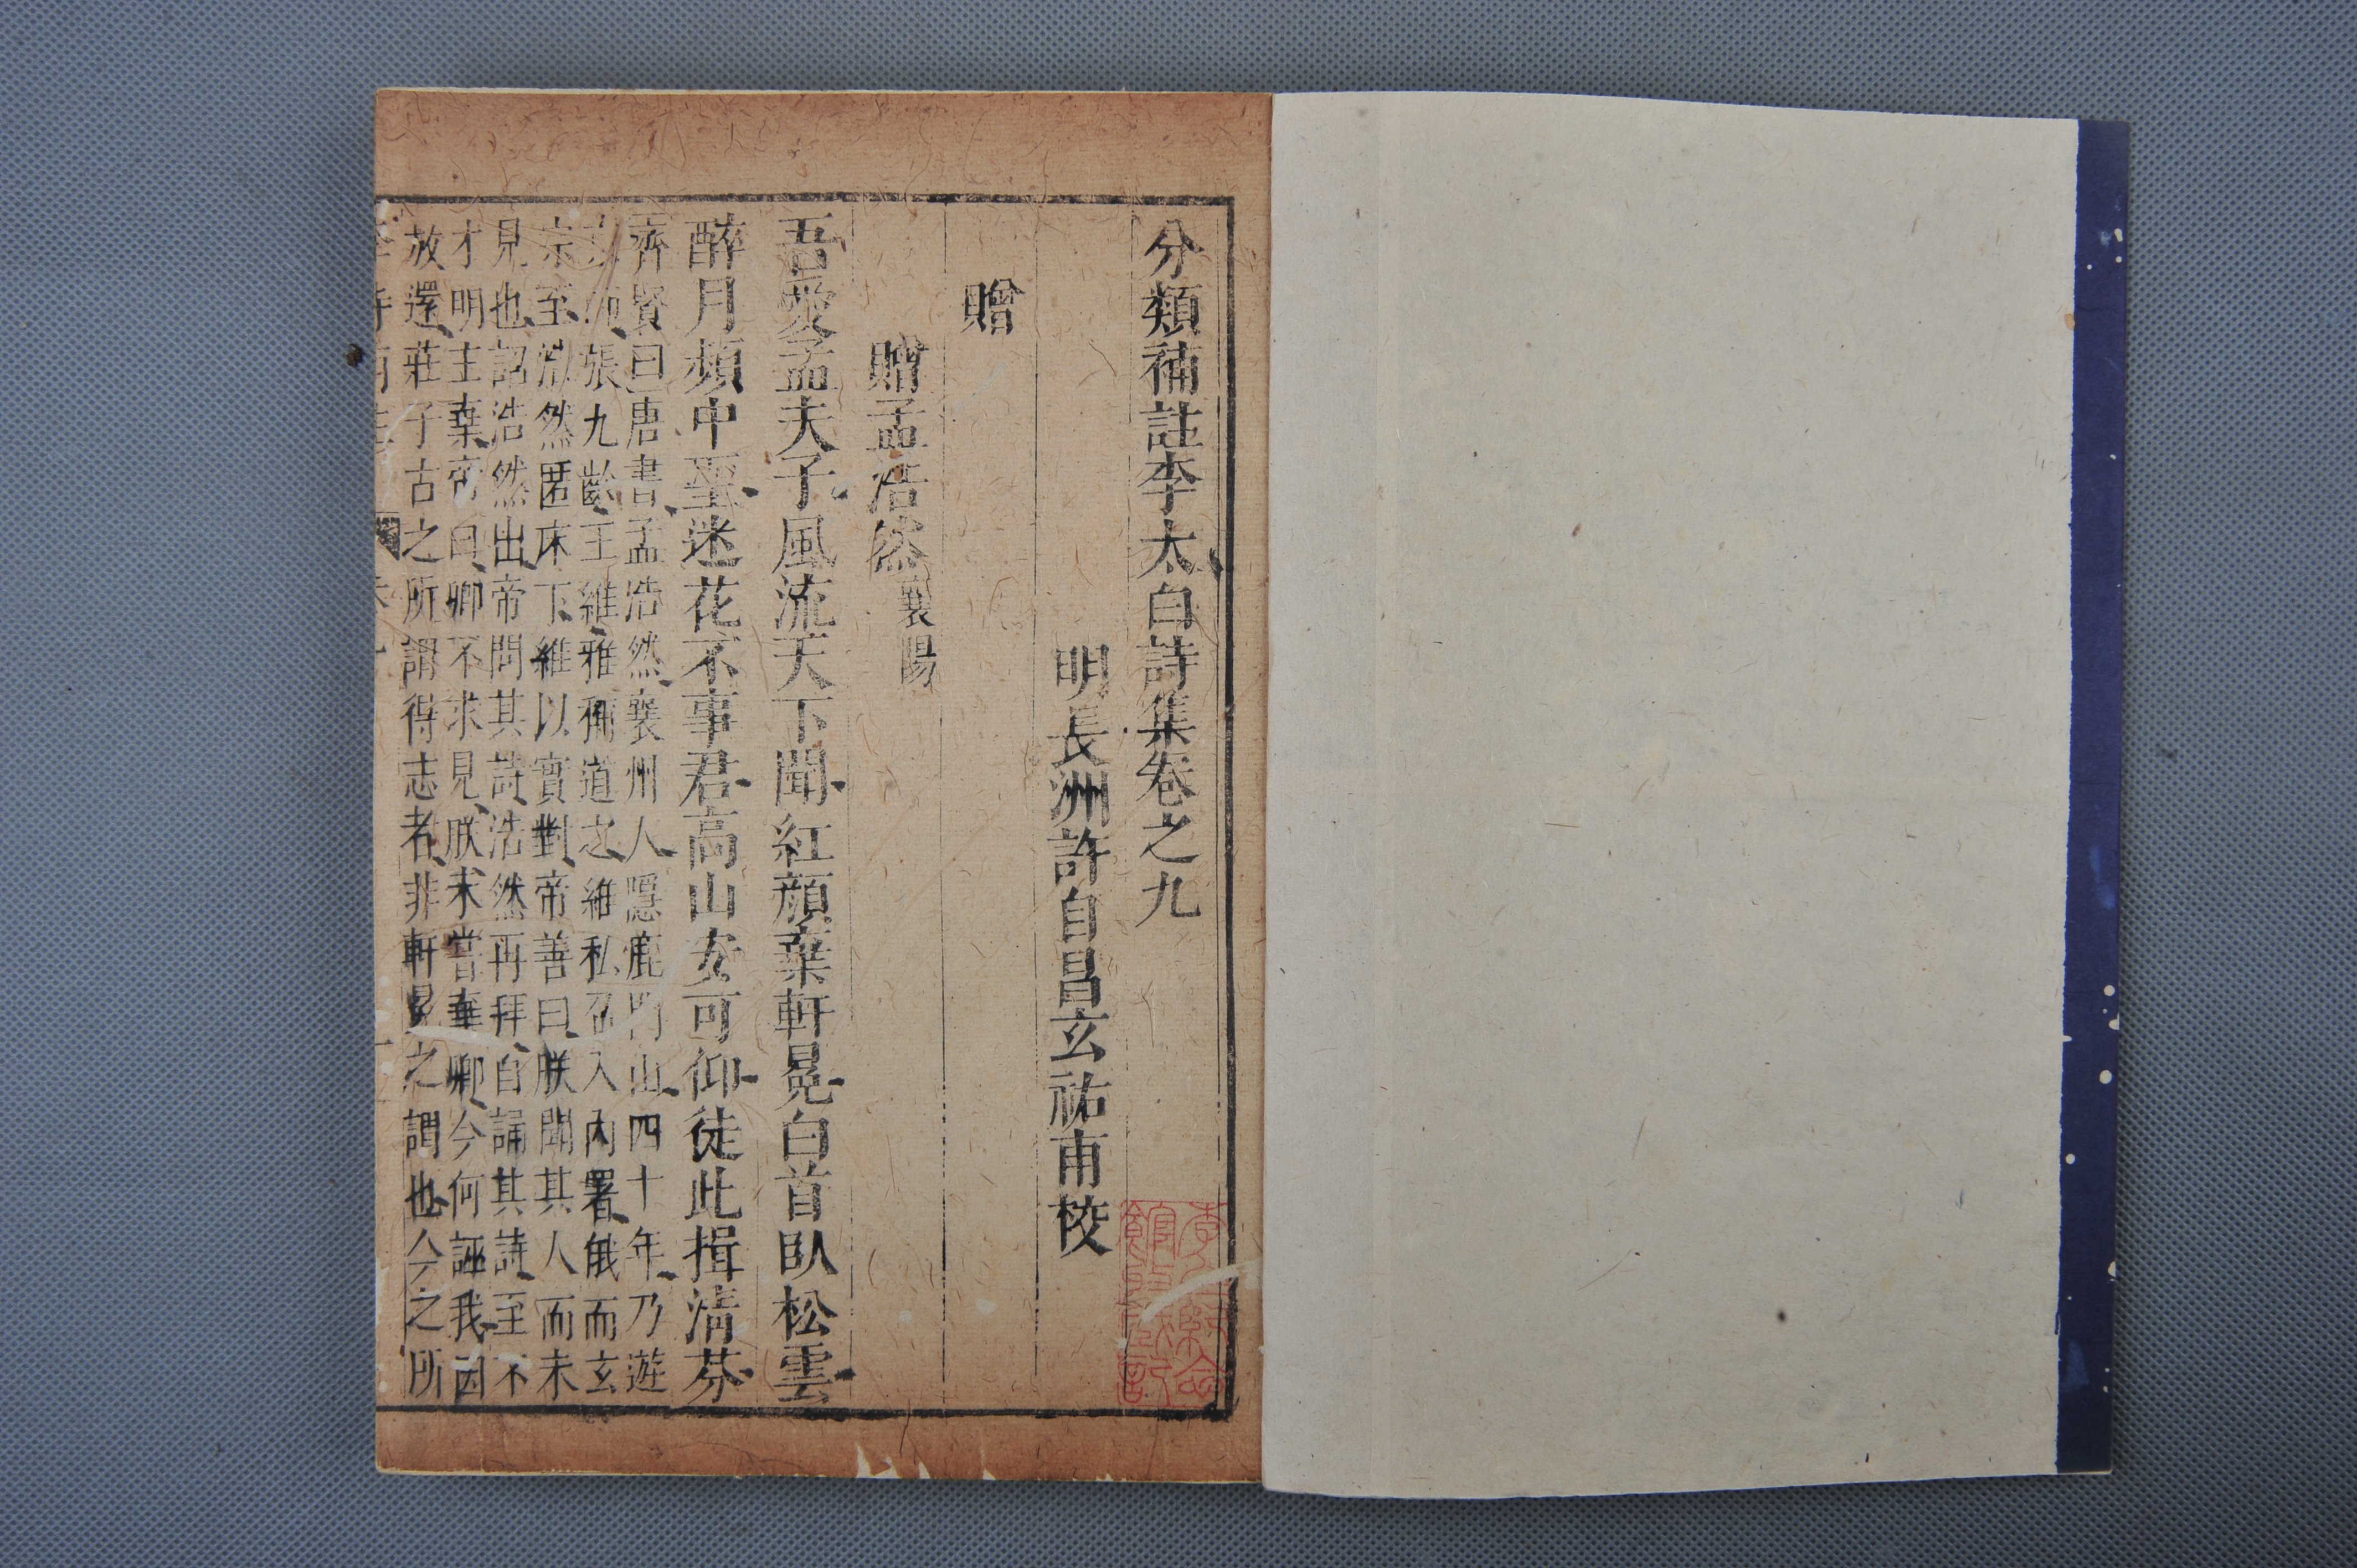 分類補註李太白詩集卷之九
明長洲許自昌玄祐甫校
贈
贈孟浩然襄陽
吾愛孟夫子風流天下聞紅顏棄軒冕白首臥松雲
醉月頻中聖迷花不事君高山安可仰徒此揖清芬
齊賢曰唐書孟浩然襄州人隱鹿門山四十年乃遊
師張九齡王維雅稱道之維私召入內署俄而玄
宗至浩然匿床下維以實對帝善曰朕聞其人而未
見也詔浩然出帝問其詩浩然再拜自誦其詩至不
才明主棄帝曰卿不求見朕未嘗棄卿今何誣我因
放還莊子古之所謂得志者非軒冕之謂也今之所